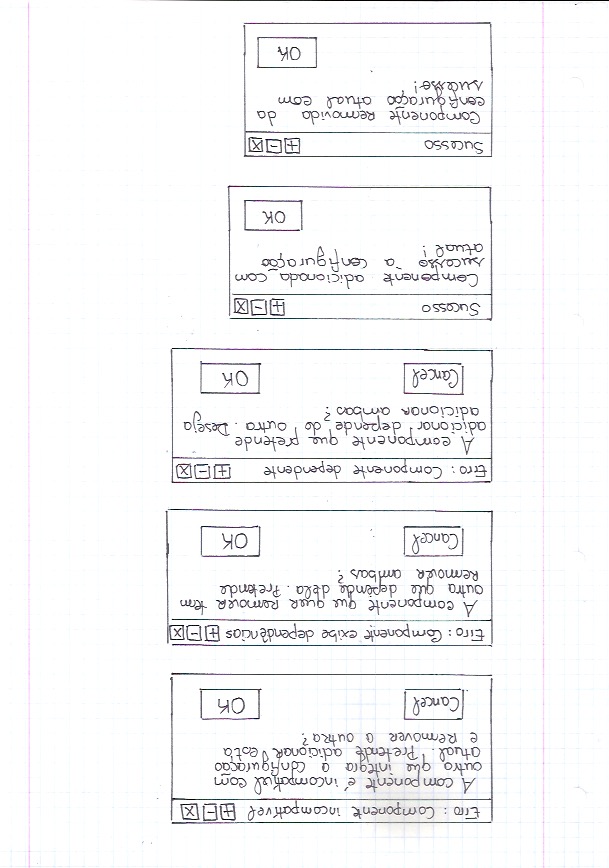 Erro: Componente incompatível + - X
A componente é incompatível com
outra que integra a configuração
atual. Pretende adicionar esta
e remover a outra?
Cancel OK
Erro: Componente exibe dependências + - X
A componente que quer remover tem
outra que depende dela. Pretende
remover ambas?
Cancel OK
Erro: Componente dependente + - X
A componente que pretende
adicionar, depende de outra. Deseja
adicionar ambas?
Cancel OK
Sucesso + - X
Componente adicionada com
sucesso à configuração
atual!
OK
Sucesso + - X
Componente removida da
configuração atual com
sucesso!
OK